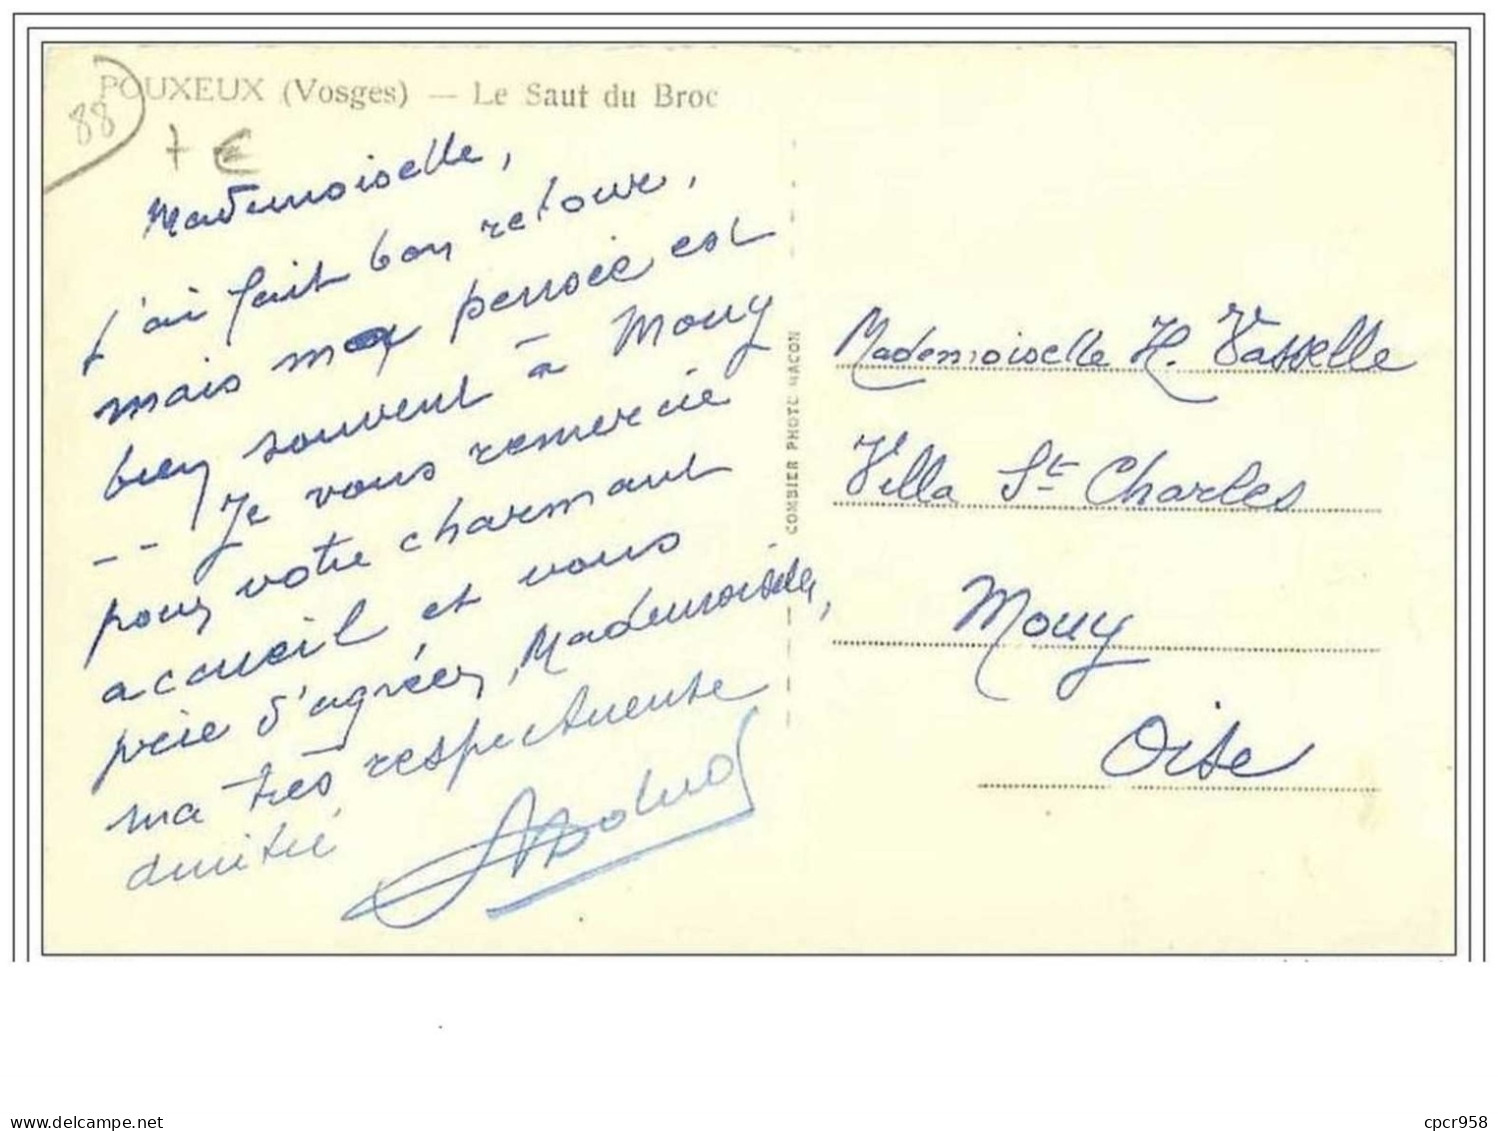 POUXEUX (Vosges) — Le Saut du Broc
88
7 €
Mademoiselle,
j'ai fait bon retour,
mais ma pensée est
bien souvent à Mouy
-- Je vous remercie
pour votre charmant
accueil et vous
prie d'agréer, Mademoiselle,
ma très respectueuse
amitié
COMBIER PHOTO MACON
Mademoiselle H. Vasselle
Villa St Charles
Mouy
Oise
cpcr958